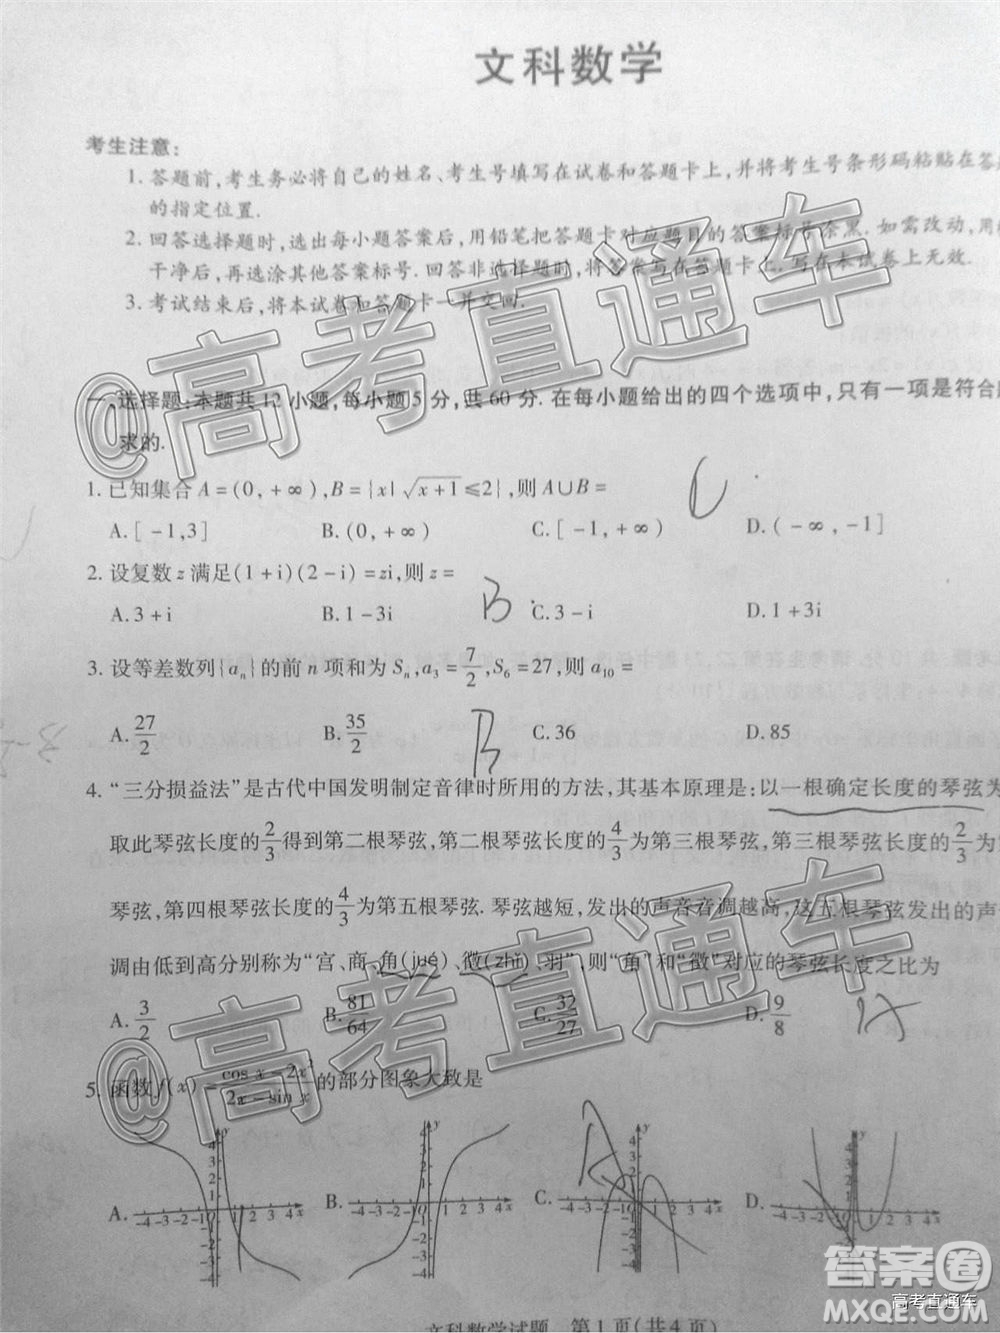 文科数学
考生注意：
1. 答题前,考生务必将自己的姓名、考生号填写在试卷和答题卡上,并将考生号条形码粘贴在答题
的指定位置.
2. 回答选择题时,选出每小题答案后,用铅笔把答题卡对应题目的答案标号涂黑. 如需改动,用
干净后,再选涂其他答案标号. 回答非选择题时,将答案写在答题卡上. 写在本试卷上无效.
3. 考试结束后,将本试卷和答题卡一并交回.
@高考直通车
一、选择题:本题共12小题,每小题5分,共60分. 在每小题给出的四个选项中,只有一项是符合
求的.
1. 已知集合 A=(0,+∞),B={x|√(x+1)≤2},则A∪B= C
A.[-1,3] B.(0,+∞) C.[-1,+∞) D.(-∞,-1]
2. 设复数 z 满足(1+i)(2-i)=zi,则 z= B
A.3+i B.1-3i C.3-i D.1+3i
3. 设等差数列{aₙ}的前 n 项和为 Sₙ,a₃=7/2,S₆=27,则 a₁₀= B
A.27/2 B.35/2 C.36 D.85
4. “三分损益法”是古代中国发明制定音律时所用的方法,其基本原理是:以一根确定长度的琴弦为
取此琴弦长度的2/3得到第二根琴弦,第二根琴弦长度的4/3为第三根琴弦,第三根琴弦长度的2/3为
琴弦,第四根琴弦长度的4/3为第五根琴弦. 琴弦越短,发出的声音音调越高,这五根琴弦发出的声
调由低到高分别称为“宫、商、角(jué)、徵(zhǐ)、羽”,则“角”和“徵”对应的琴弦长度之比为
A.3/2 B.81/64 C.32/27 D.9/8
@高考直通车
5. 函数 f(x)=(cos x-2x²)/(2x-sin x)的部分图象大致是
A. B. C. D.
文科数学试题 第1页(共4页)
答案圈
MXQE.COM
高考直通车